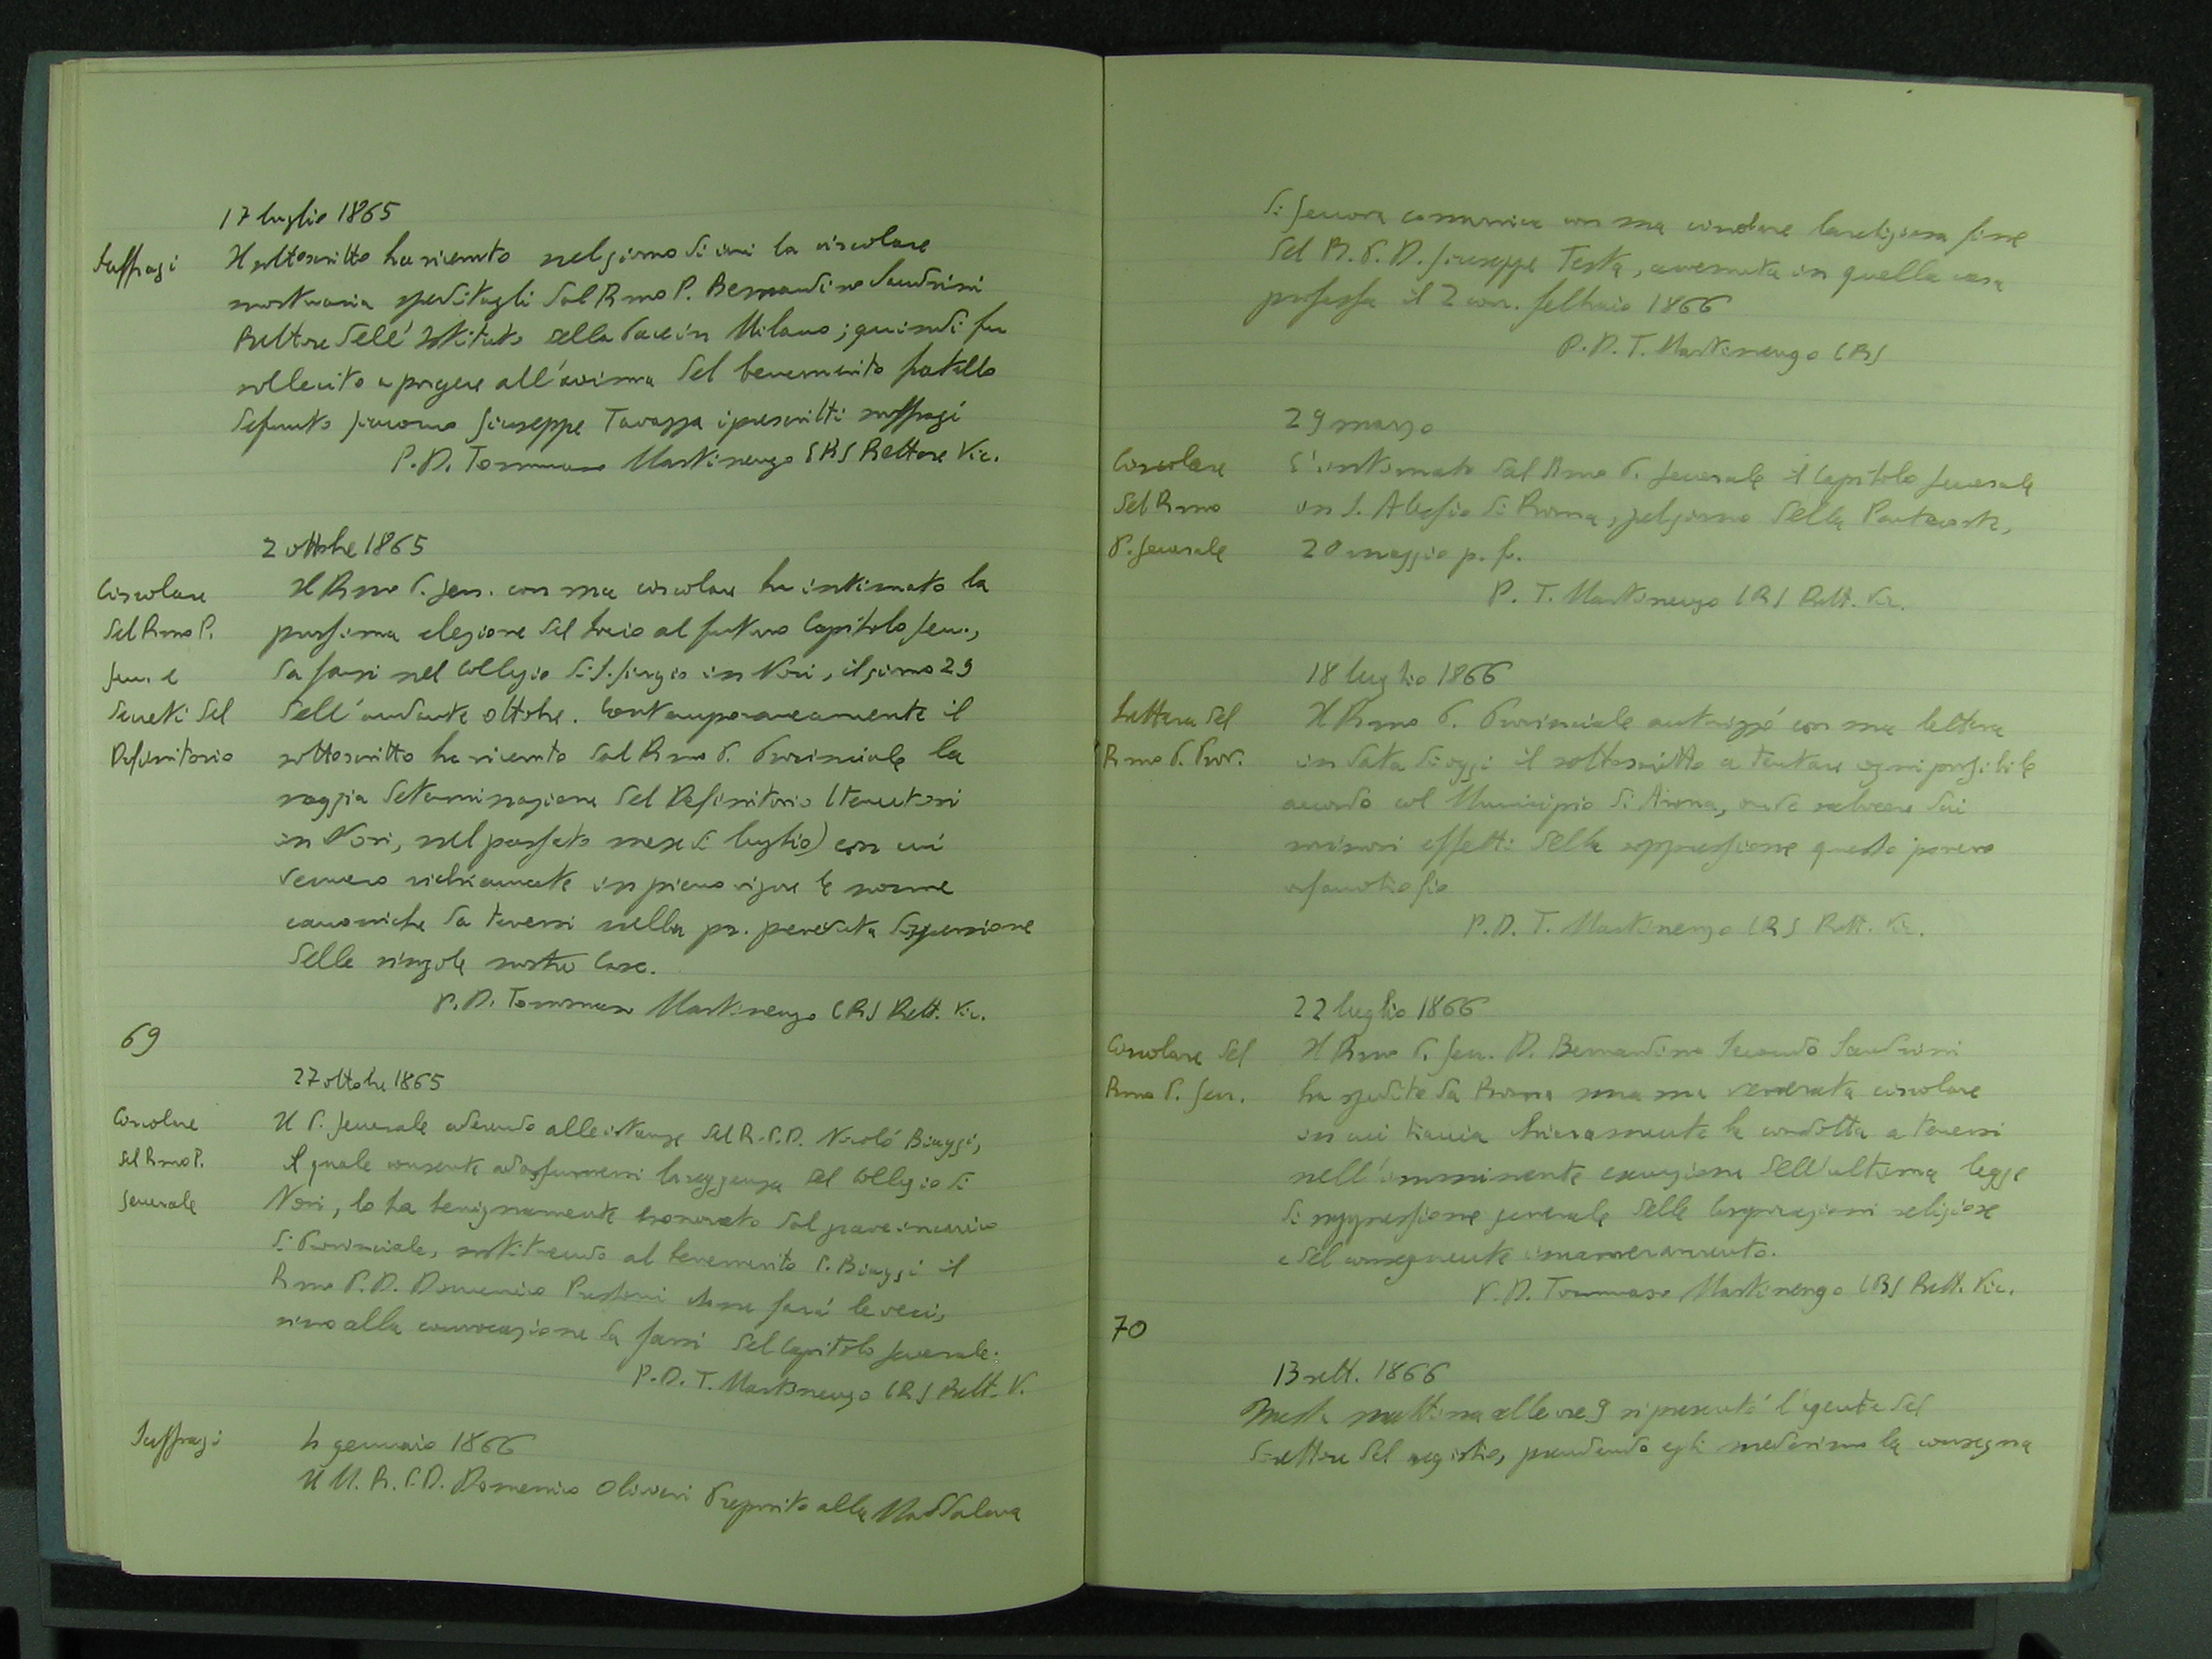 17 luglio 1865
Suffragi
Il sottoscritto ha ricevuto nel giorno di ieri la circolare
mortuaria speditagli dal Rmo P. Bernardino Sandrini
Rettore dell'Istituto della Pace in Milano; quindi fu
sollecito a porgere all'anima del benemerito fratello
defunto Giacomo Giuseppe Tavazza i prescritti suffragi
P. D. Tommaso Martinengo CRS Rettore Vic.
2 ottobre 1865
Circolare
del Rmo P.
Gen. e
decreti del
Definitorio
Il Rmo P. Gen. con sua circolare ha intimato la
prossima elezione del Socio al futuro Capitolo Gen.,
da farsi nel Collegio di S. Giorgio in Novi, il giorno 29
dell'andante ottobre. Contemporaneamente il
sottoscritto ha ricevuto dal Rmo P. Provinciale la
saggia determinazione del Definitorio (tenutosi
in Novi, nel passato mese di luglio) con cui
vennero richiamate in pieno vigore le norme
canoniche da tenersi nella pr. preveduta dispersione
delle singole nostre Case.
P. D. Tommaso Martinengo CRS Rett. Vic.
69
27 ottobre 1865
Circolare
del Rmo P.
Generale
Il P. Generale aderendo alle istanze del R. P. D. Nicolò Biaggi,
il quale consente ad assumersi la reggenza del Collegio di
Novi, lo ha benignamente esonerato dal grave incarico
di Provinciale, sostituendo al benemerito P. Biaggi il
Rmo P. D. Domenico Pressoni che ne farà le veci,
sino alla convocazione da farsi del Capitolo Generale.
P. D. T. Martinengo CRS Rett. V.
Suffragi
4 gennaio 1866
Il M. R. P. D. Domenico Oliveri Preposito alla Maddalena
di Genova comunica con sua circolare la religiosa fine
del R. P. D. Giuseppe Testa, avvenuta in quella casa
professa il 2 corr. febbraio 1866
P. D. T. Martinengo CRS
29 marzo
Circolare
del Rmo
P. Generale
È intimato dal Rmo P. Generale il Capitolo Generale
in S. Alessio di Roma, pel giorno della Pentecoste,
20 maggio p. f.
P. T. Martinengo CRS Rett. Vic.
18 luglio 1866
Lettera del
Rmo P. Prov.
Il Rmo P. Provinciale autorizzò con sua lettera
in data di oggi il sottoscritto a tentare ogni possibile
accordo col Municipio di Arona, onde salvare dai
sinistri effetti della soppressione questo povero
orfanotrofio
P. D. T. Martinengo CRS Rett. Vic.
22 luglio 1866
Circolare del
Rmo P. Gen.
Il Rmo P. Gen. D. Bernardino Secondo Sandrini
ha spedito da Roma una sua venerata circolare
in cui traccia chiaramente la condotta a tenersi
nell'imminente esecuzione dell'ultima legge
di soppressione generale delle Corporazioni religiose
e del conseguente incameramento.
P. D. Tommaso Martinengo CRS Rett. Vic.
70
13 sett. 1866
Questa mattina alle ore 9 si presentò l'agente del
direttore del registro, prendendo egli medesimo la consegna